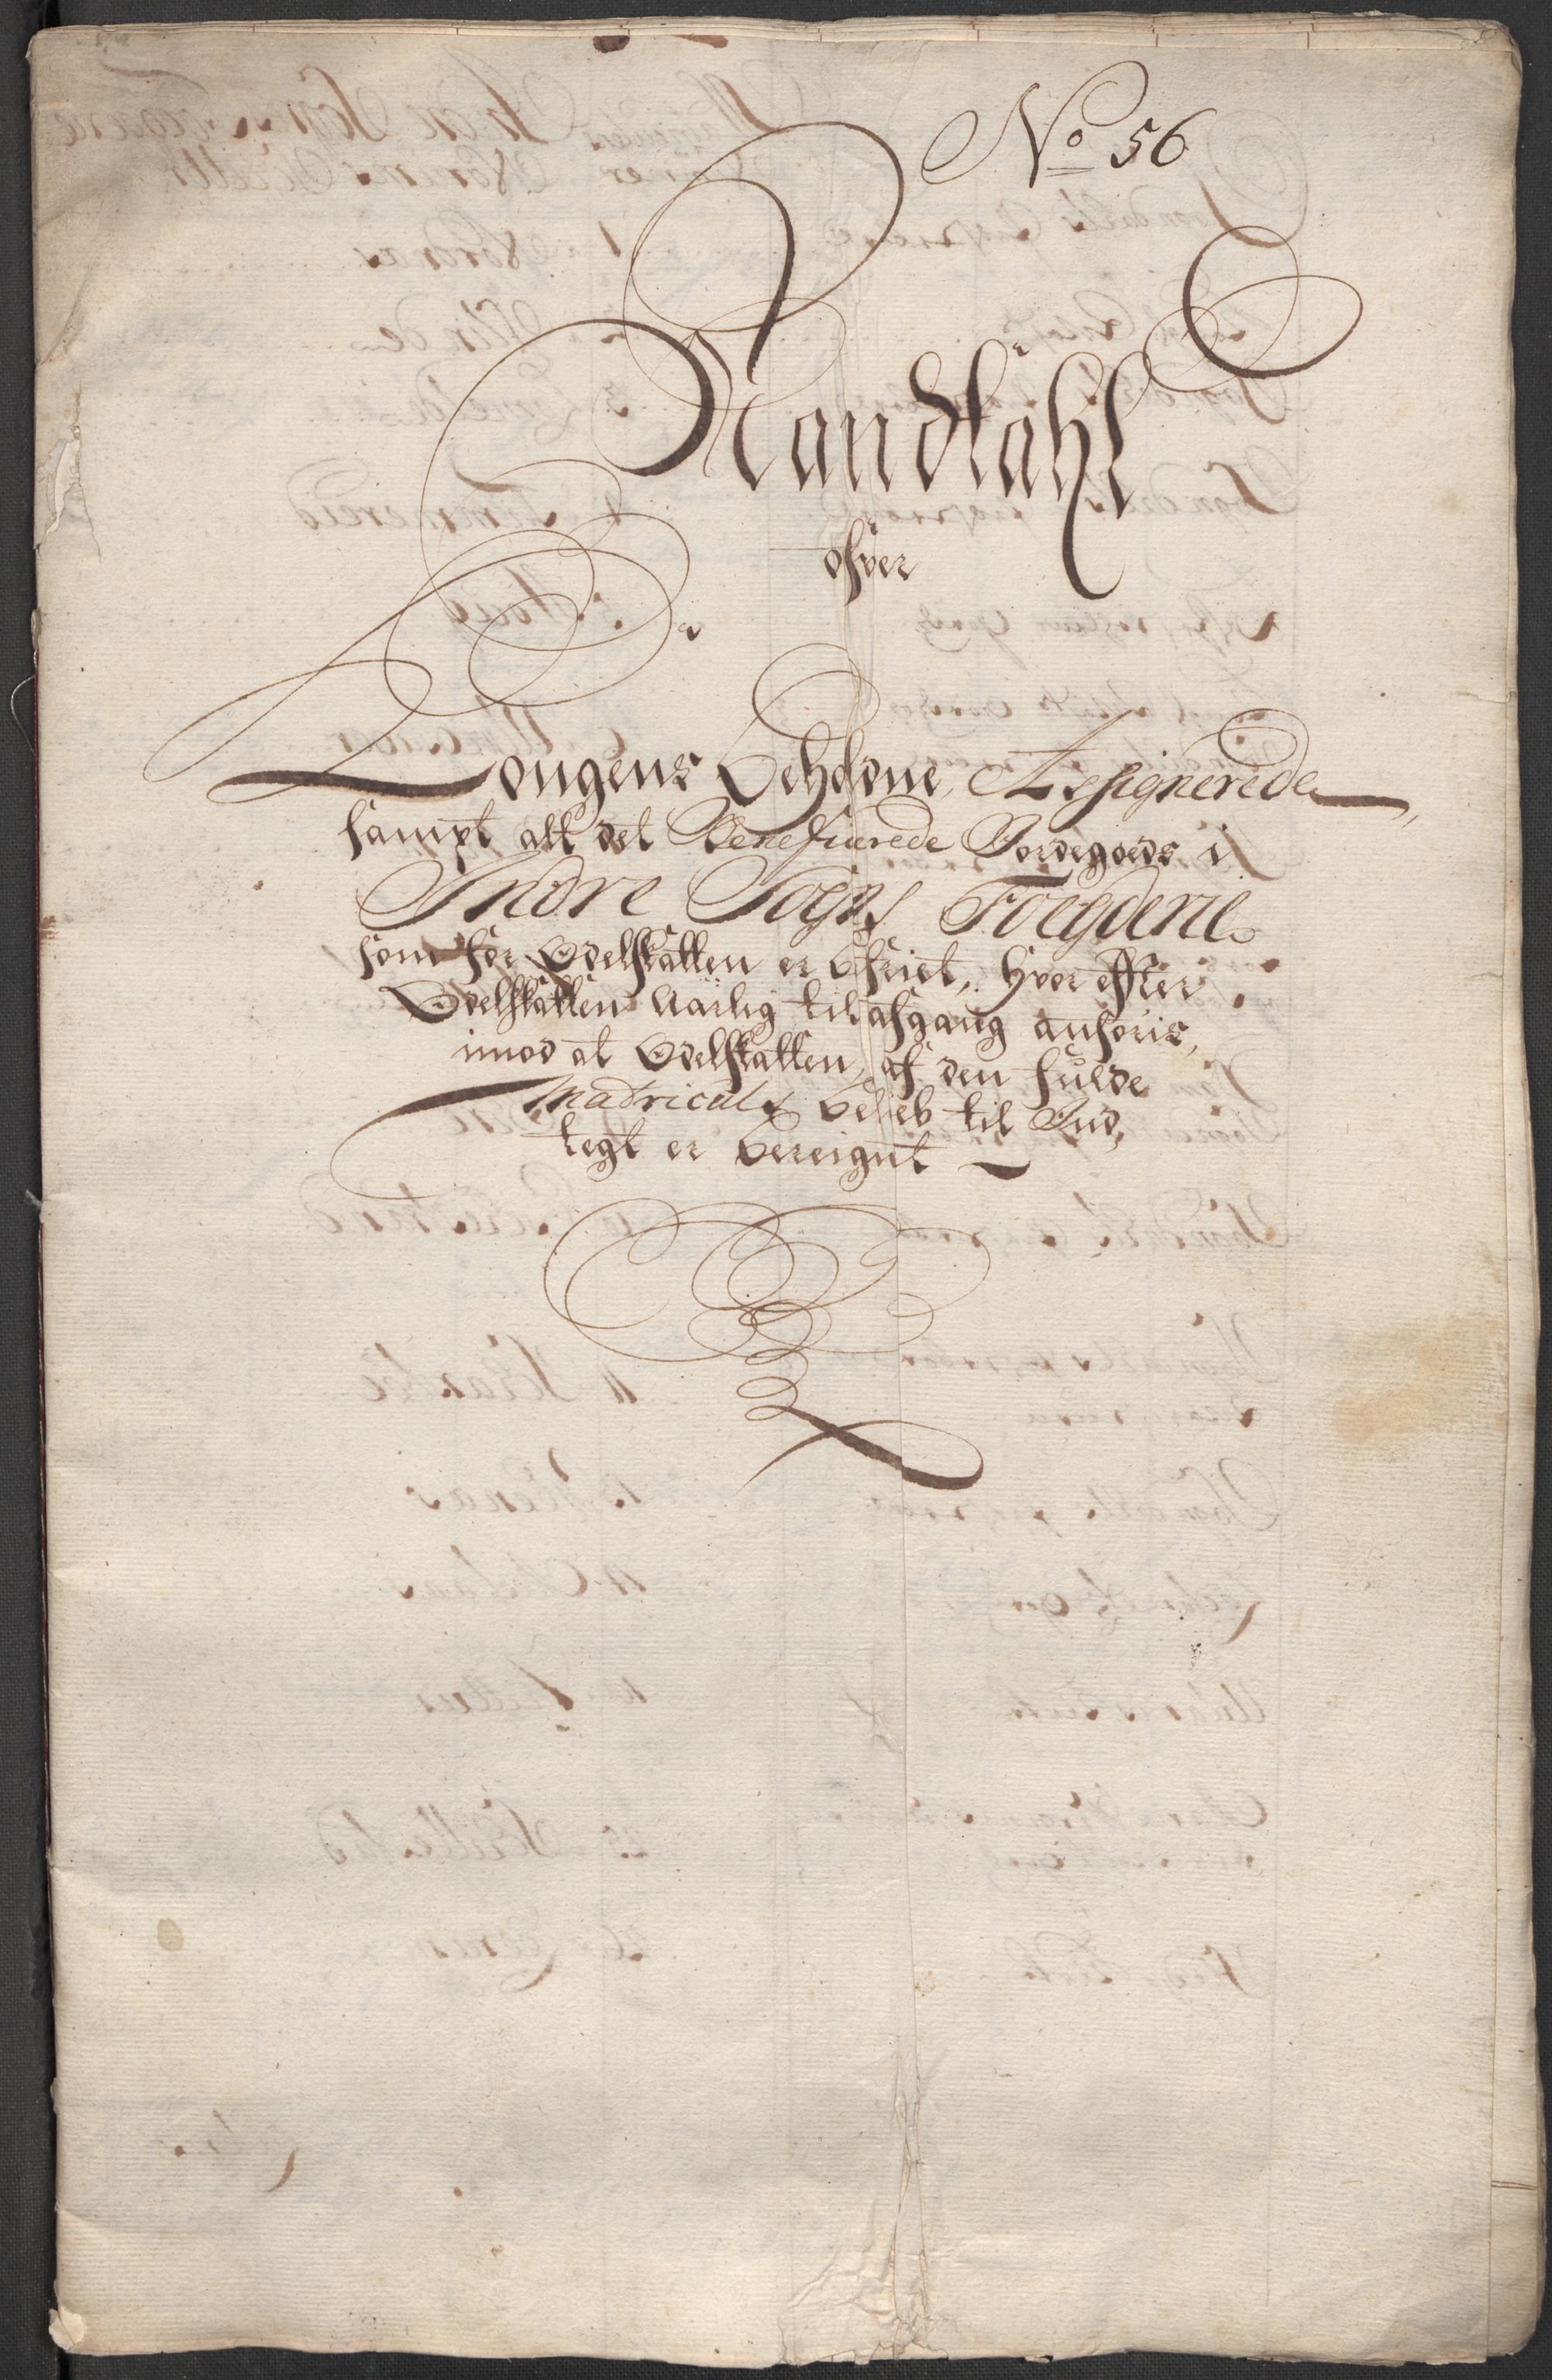 No 56
Mandtahl
ofver
Kongens Beholdne, Assignerede,
sampt alt det Beneficerede Jordegods i
Indre Sogns Foegderie
som for Odelskatten er befriet, hvor effter
Odelskatten aarlig til afgang anføris,
imod at Odelskatten, af den fulde
Matriculs beløb til Ind,
tegt er beregnit